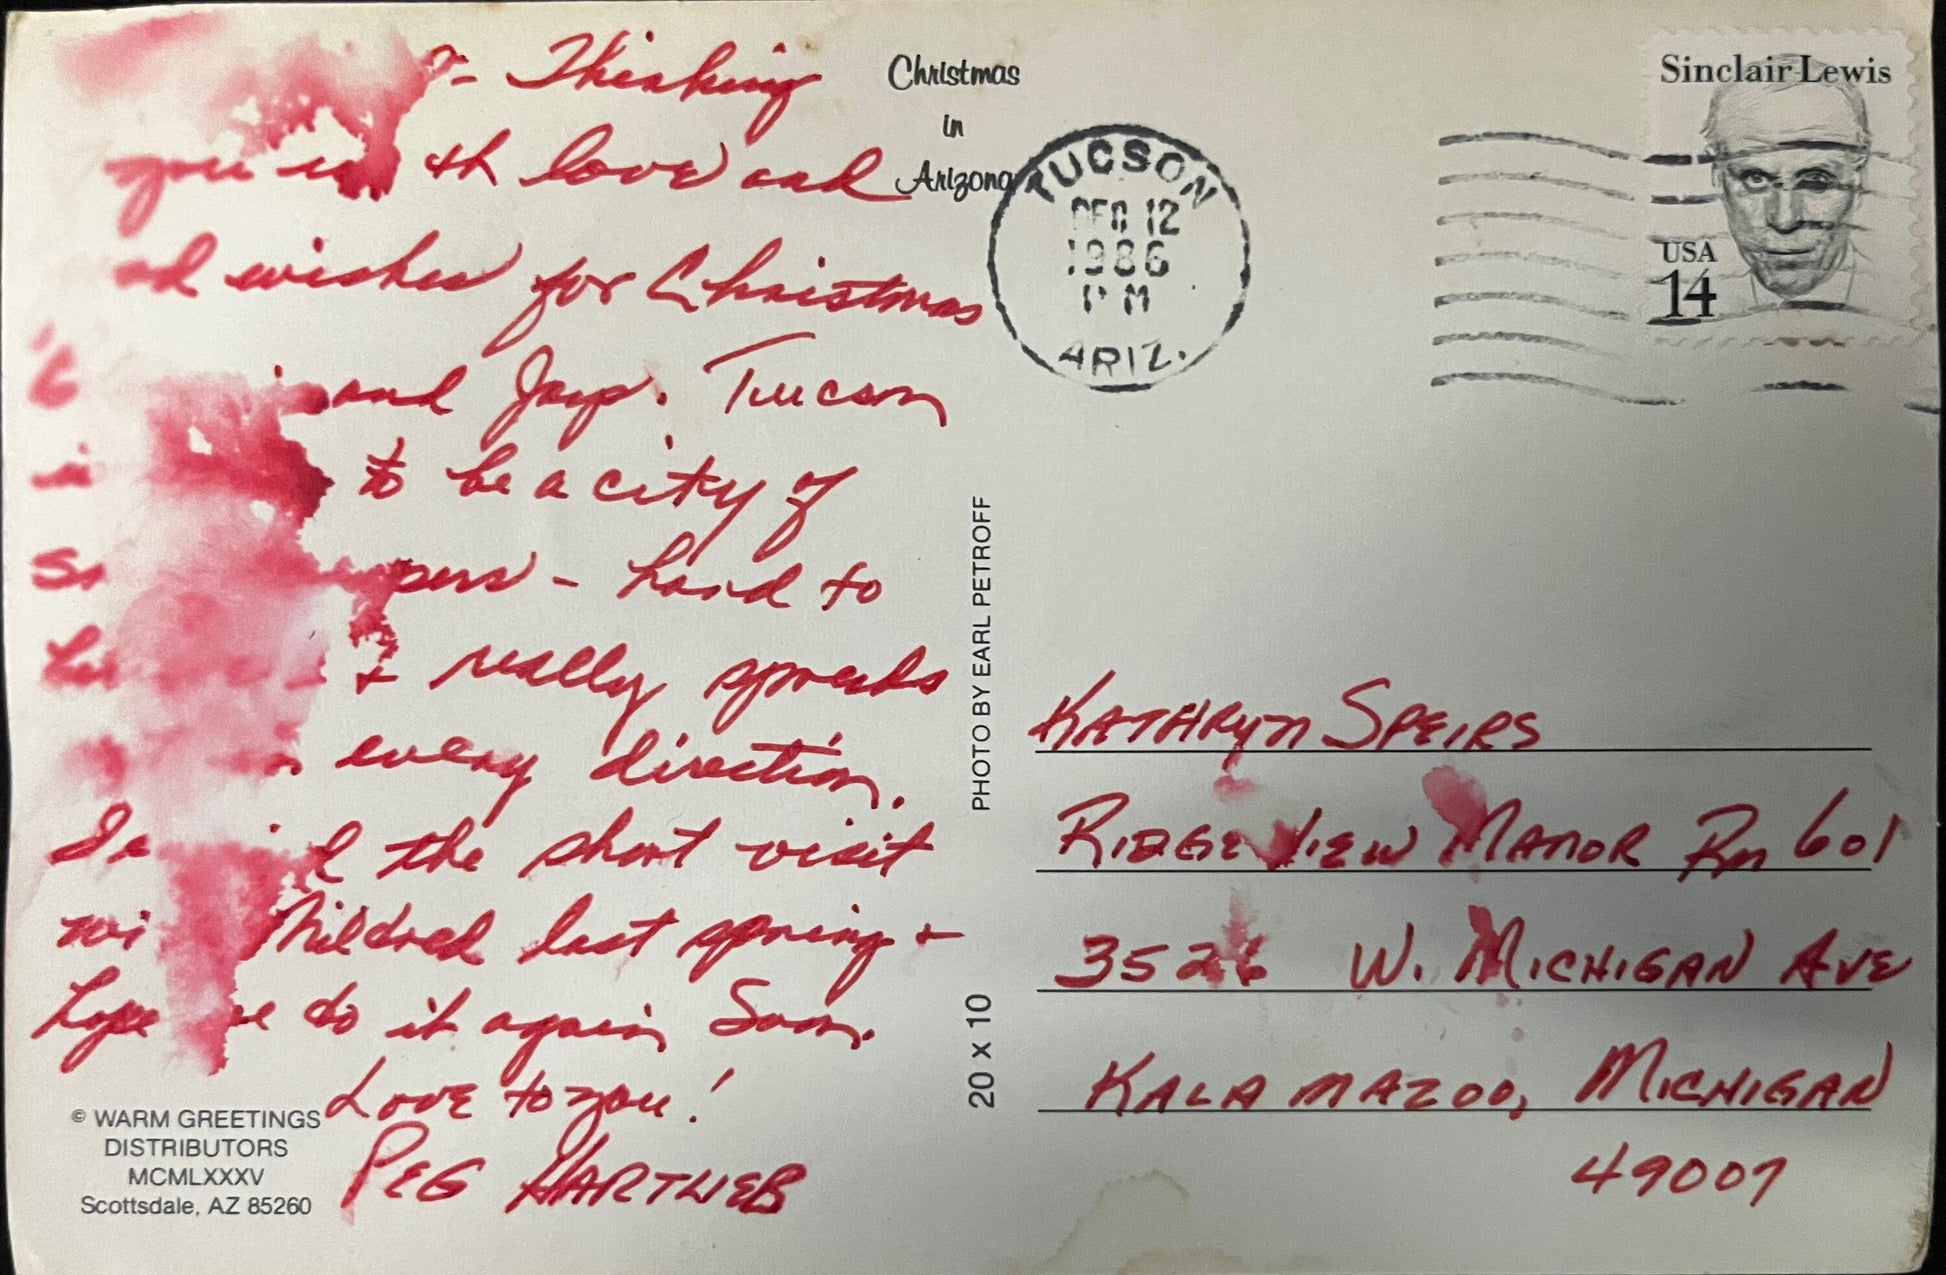 - Thinking
you with love and
wishes for Christmas
and Joy. Tucson
to be a city of
- hard to
& really spreads
every direction.
the short visit
Mildred last spring +
hope we do it again Soon.
Love to you!
PEG HARTLIEB
© WARM GREETINGS
DISTRIBUTORS
MCMLXXXV
Scottsdale, AZ 85260
Christmas
in
Arizona
PHOTO BY EARL PETROFF
20 x 10
TUCSON
DEC 12
1986
PM
ARIZ.
Sinclair Lewis
USA
14
KATHRYN SPEIRS
RIDGE VIEW MANOR Rm 601
3526 W. MICHIGAN AVE
KALAMAZOO, MICHIGAN
49007